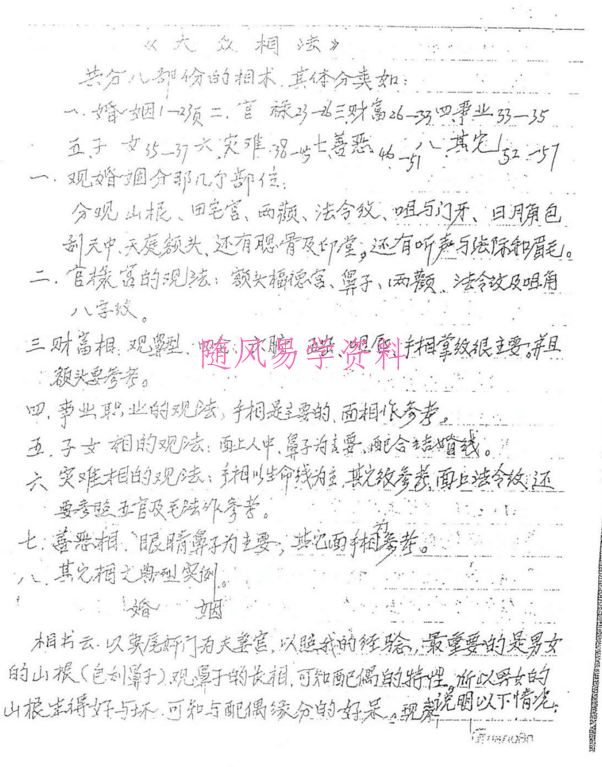 《大众相法》
共分八部份的相术.具体分类如:
一.婚姻1—23页二.官禄23—26三财富26—33四事业33—35
五.子女35—37六.灾难38—45七善恶46—51八.其它52—57
一.观婚姻分那几个部位:
分观山根、田宅宫、两颧、法令纹、咀与门牙、日月角包
刮天中.天庭额头.还有腮骨及印堂。还有听声与法际和眉毛。
二.官禄宫的观法:额头福德宫、鼻子、两颧、法令纹及咀角
八字纹。
三财富相.观鼻型、手相掌纹很主要.并且
额头要参考。
随风易学资料
四.事业职业的观法,手相是主要的.面相作参考。
五.子女相的观法:面上人中.鼻子为主要.配合结婚线。
六灾难相的观法:手相以生命线为主.其它纹参考.面上法令纹.还
要参照五官及毛法作参考。
七.善恶相.眼睛鼻子为主要,其它面手相为参考。
八.其它相之典型实例。
婚姻
相书云.以奸门为夫妻宫,以照我的经验,最重要的是男女
的山根(包刮鼻子).观鼻子的长相.可知配偶的特性。所以男女的
山根生得好与坏.可知与配偶缘分的好呆。现说明以下情况: